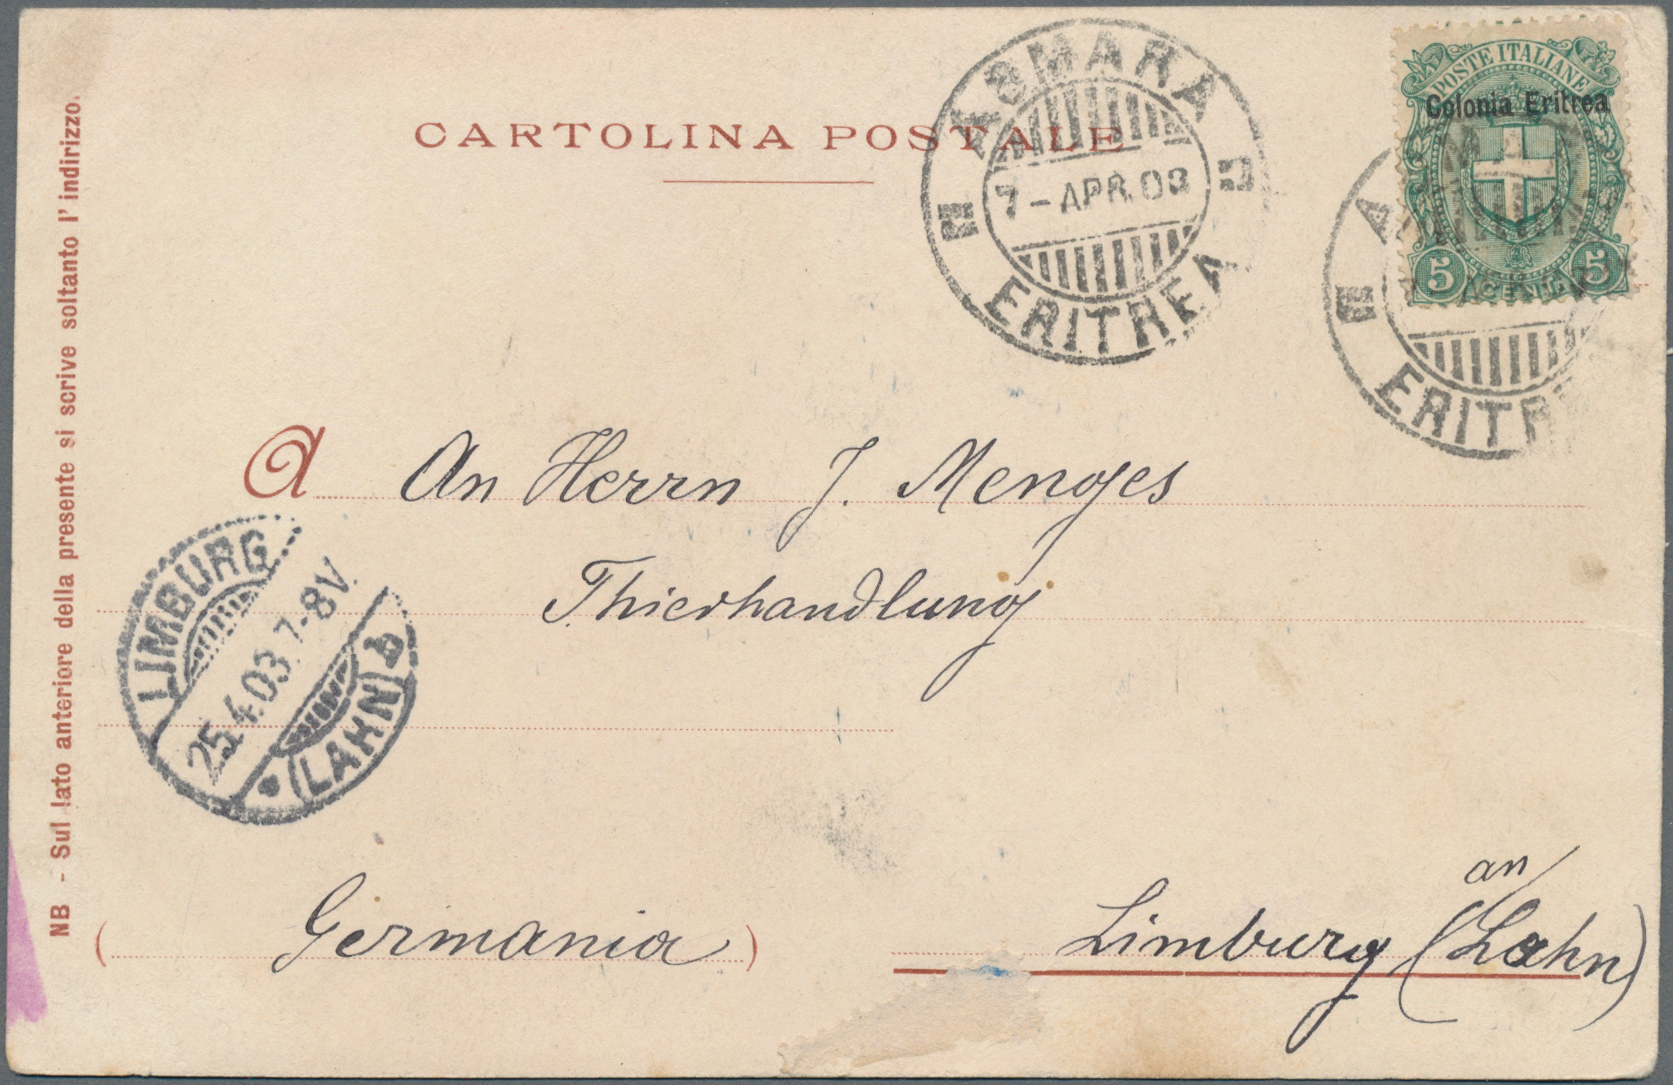 CARTOLINA POSTALE
ASMARA
7 - APR. 03
ERITREA
POSTE ITALIANE
Colonia Eritrea
5 5
ERITR
A An Herrn J. Menges
Thierhandlung
LIMBURG
25.4.03.7-8V.
* (LAHN)
an
(Germania) Limburg (Lahn)
NB - Sul lato anteriore della presente si scrive soltanto l'indirizzo.